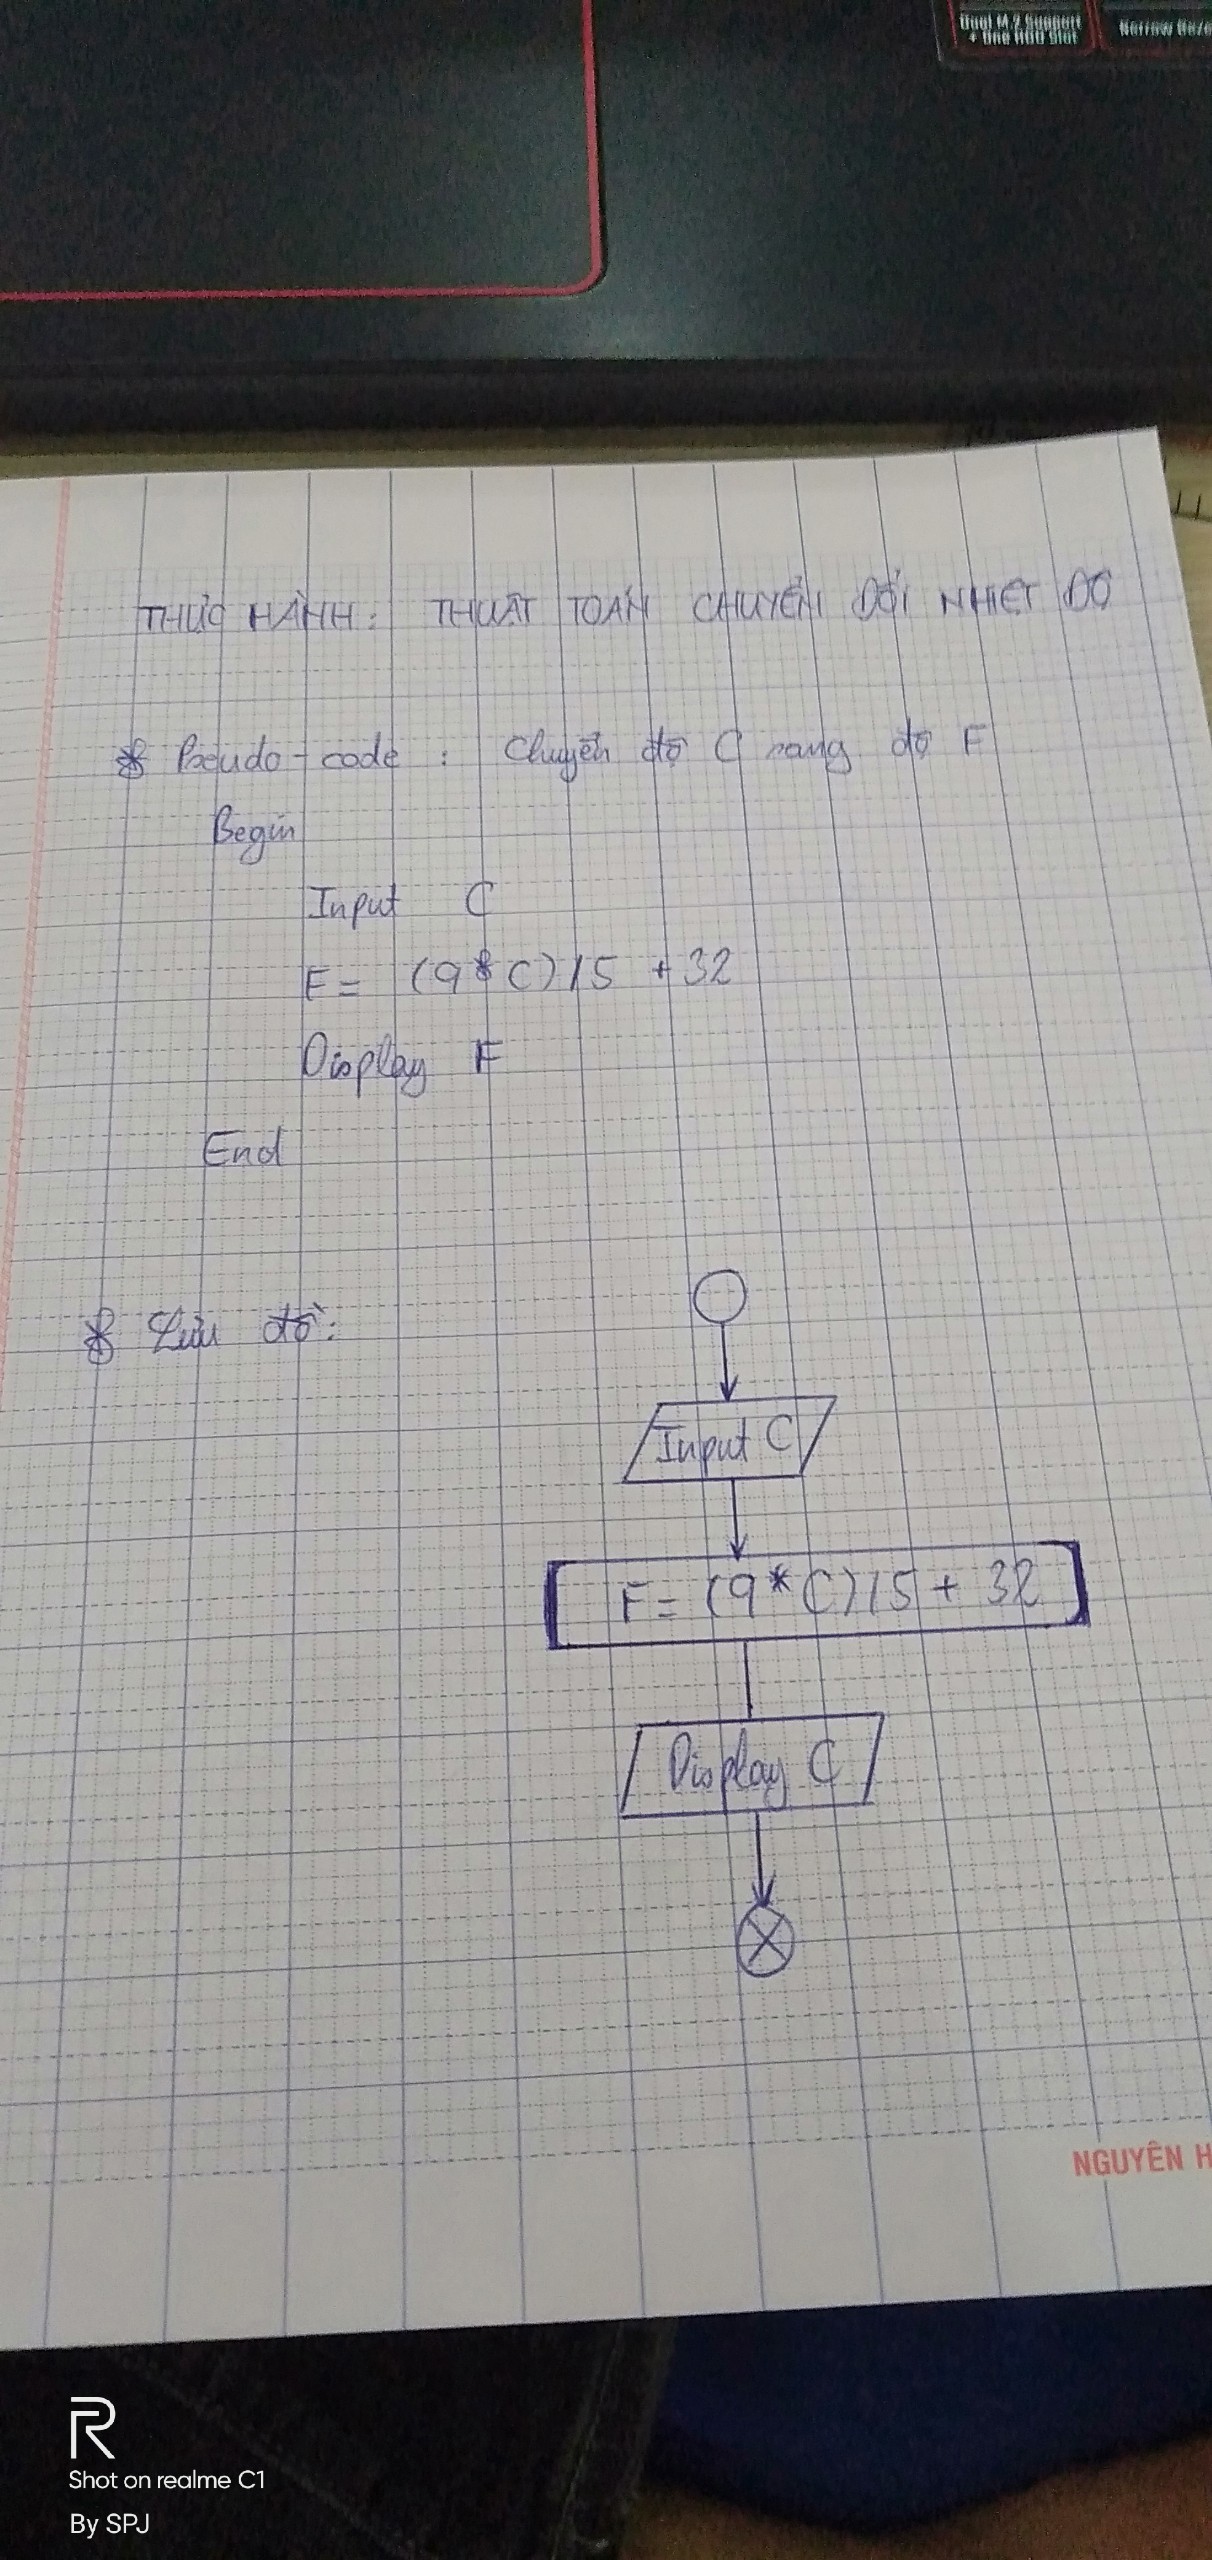 Dual M.2 Support
+ One HDD Slot
THỰC HÀNH: THUẬT TOÁN CHUYỂN ĐỔI NHIỆT ĐỘ
* Pseudo-code : Chuyển độ C sang độ F
Begin
Input C
F = (9*C)/5 + 32
Display F
End
* Lưu đồ:
Input C
F = (9*C)/5 + 32
Display C
NGUYÊN H
R
Shot on realme C1
By SPJ